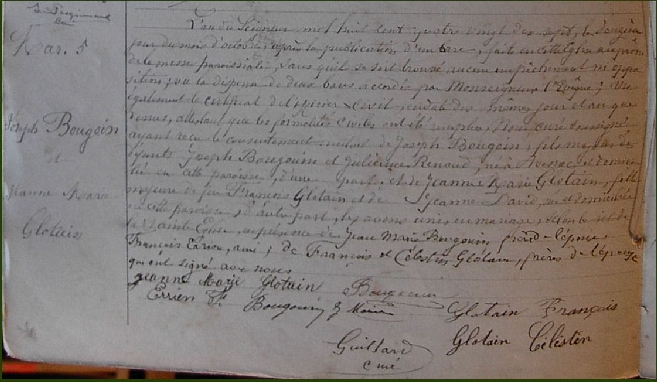 Curé
Mar. 5
Joseph Bougoin
et
Jeanne Marie
Glotain
L'an du Seigneur mil huit cent quatre vingt dix sept, le
jour du mois d'octobre, après la publication d'un banc, faite en cette Eglise au prône
de la messe paroissiale, sans qu'il se soit trouvé aucun empêchement ni oppo
sition; vu la dispense de deux bans accordée par Monseigneur l'Evêque; vu
également le certificat de l'officier civil, en date des mêmes jour et an que
dessus, attestant que les formalités civiles ont été remplies, Nous curé soussigné
ayant reçu le consentement mutuel de Joseph Bougoin, fils majeur des
Joseph Bougouin et Julienne Renoud, né à Avessac, et domici
lié en cette paroisse, d'une part, et de Jeanne Marie Glotain, fille
majeure de feu François Glotain et de Jeanne David, née et domiciliée
en cette paroisse, d'autre part, les avons unis en mariage, selon le rit de
la Sainte Eglise, en présence de Jean Marie Bougouin, frère de l'époux,
François Erien, ami, de François et Célestin Glotain, frères de l'épouse
qui ont signé avec nous
Jeanne Marie Glotain Bougouin
Errien F. Bougouin J Marie Glotain François
Glotain Célestin
Guittard
Curé